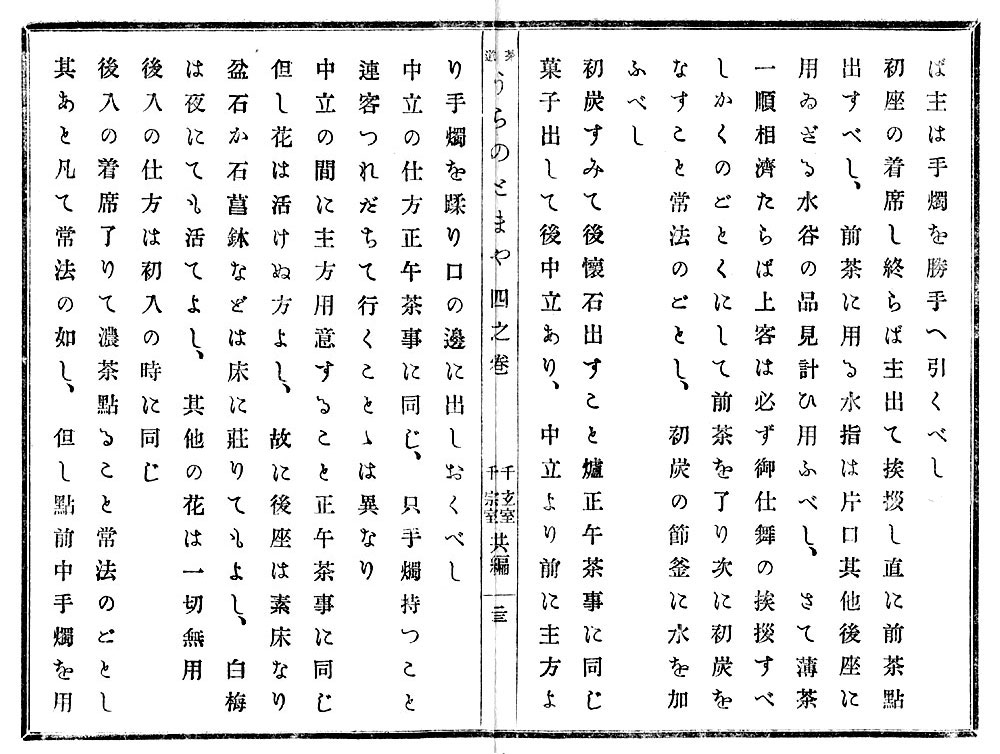 ば主は手燭を勝手へ引くべし
初座の着席し終らば主出て挨拶し直に前茶點
出すべし、前茶に用る水指は片口其他後座に
用ゐざる水谷の品見計ひ用ふべし、さて薄茶
一順相濟たらば上客は必ず御仕舞の挨拶すべ
しかくのごとくにして前茶を了り次に初炭を
なすこと常法のごとし、初炭の節釜に水を加
ふべし
初炭すみて後懷石出すこと爐正午茶事に同じ
菓子出して後中立あり、中立より前に主方よ
茶道 うらのとまや 四之卷 千玄室 千宗室 共編 二三
り手燭を蹂り口の邊に出しおくべし
中立の仕方正午茶事に同じ、只手燭持つこと
連客つれだちて行くことゝは異なり
中立の間に主方用意すること正午茶事に同じ
但し花は活けぬ方よし、故に後座は素床なり
盆石か石菖鉢などは床に莊りてもよし、白梅
は夜にても活てよし、其他の花は一切無用
後入の仕方は初入の時に同じ
後入の着席了りて濃茶點ること常法のごとし
其あと凡て常法の如し、但し點前中手燭を用